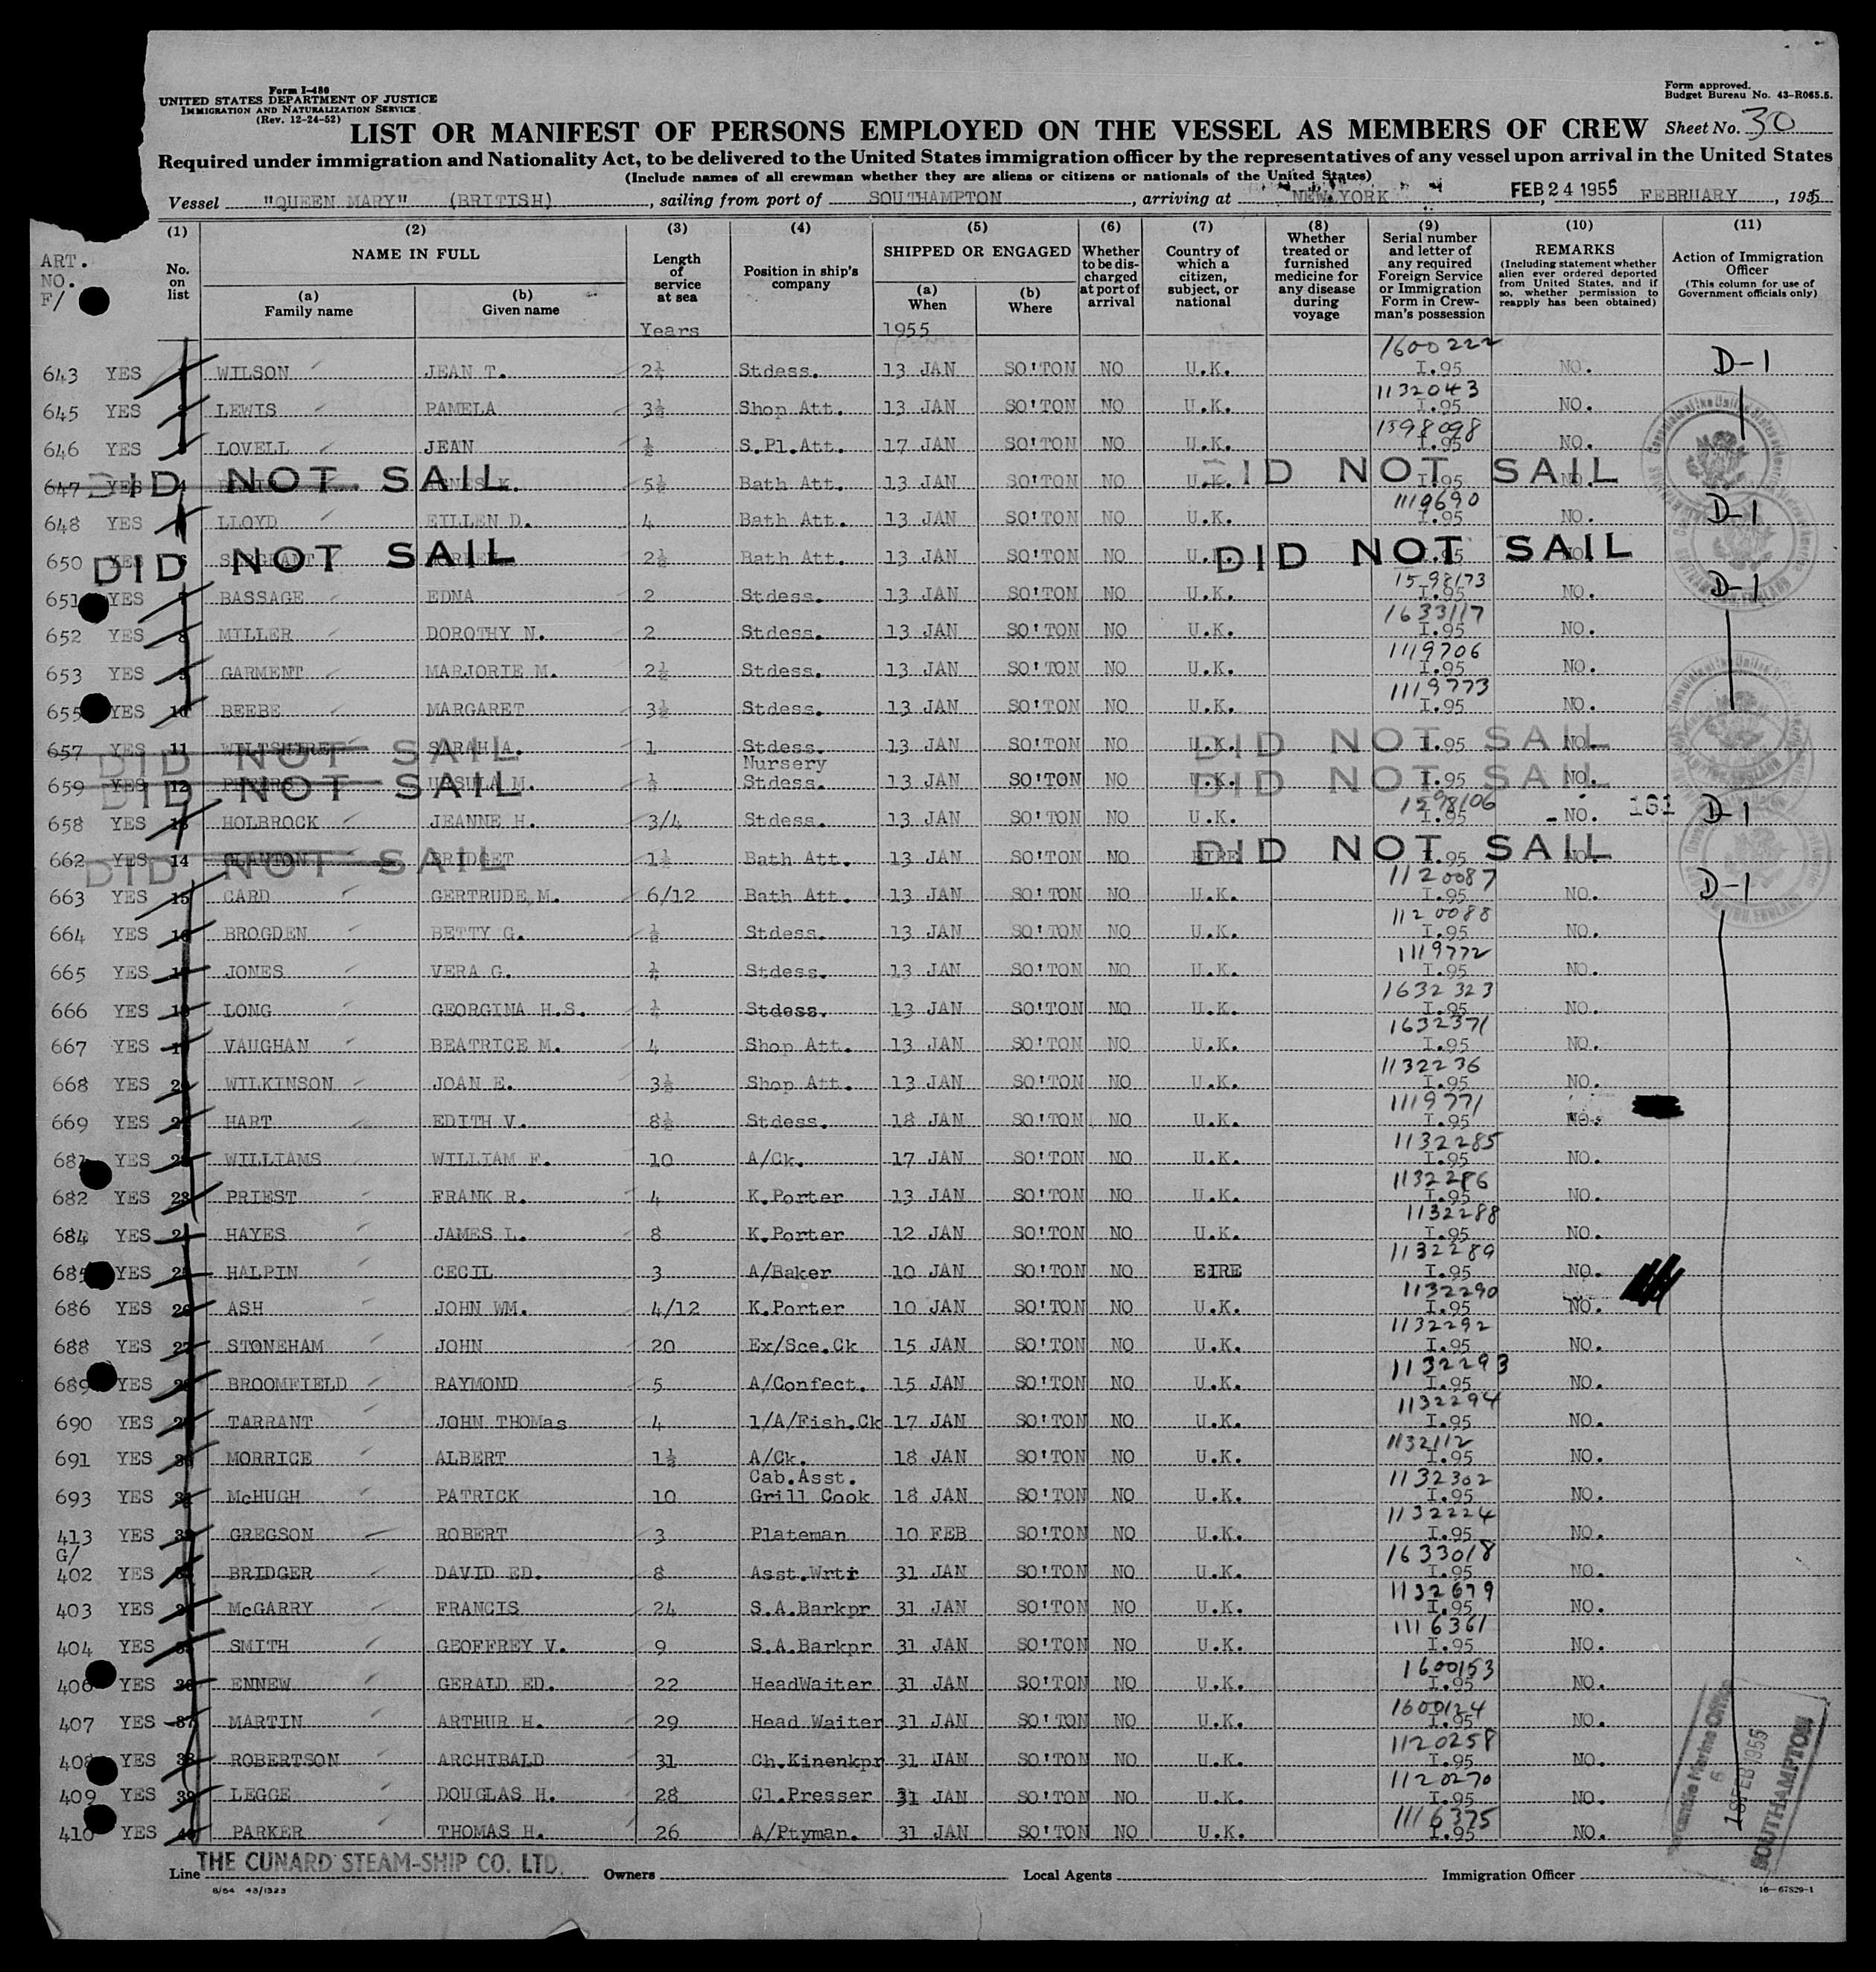 Form I-480
UNITED STATES DEPARTMENT OF JUSTICE
IMMIGRATION AND NATURALIZATION SERVICE
(Rev. 12-24-52)
Form approved.
Budget Bureau No. 43-R065.5.
LIST OR MANIFEST OF PERSONS EMPLOYED ON THE VESSEL AS MEMBERS OF CREW Sheet No. 30
Required under immigration and Nationality Act, to be delivered to the United States immigration officer by the representatives of any vessel upon arrival in the United States
(Include names of all crewman whether they are aliens or citizens or nationals of the United States)
Vessel "QUEEN MARY" (BRITISH), sailing from port of SOUTHAMPTON, arriving at NEW YORK FEB 24 1955 FEBRUARY, 1955
ART. NO. F/
(1) No. on list
(2) NAME IN FULL (a) Family name (b) Given name
(3) Length of service at sea Years
(4) Position in ship's company
(5) SHIPPED OR ENGAGED (a) When (b) Where 1955
(6) Whether to be discharged at port of arrival
(7) Country of which a citizen, subject, or national
(8) Whether treated or furnished medicine for any disease during voyage
(9) Serial number and letter of any required Foreign Service or Immigration Form in Crewman's possession
(10) REMARKS (Including statement whether alien ever ordered deported from United States, and if so, whether permission to reapply has been obtained)
(11) Action of Immigration Officer (This column for use of Government officials only)
643 YES WILSON JEAN T. 2¼ Stdess. 13 JAN SO'TON NO U.K. 1600222 I.95 NO. D-1
645 YES LEWIS PAMELA 3½ Shop Att. 13 JAN SO'TON NO U.K. 1132043 I.95 NO.
646 YES LOVELL JEAN ½ S.Pl.Att. 17 JAN SO'TON NO U.K. 1598098 I.95 NO.
647 YES 4 K. 5½ Bath Att. 13 JAN SO'TON NO U.K. I.95 NO. DID NOT SAIL DID NOT SAIL
648 YES LLOYD EILLEN D. 4 Bath Att. 13 JAN SO'TON NO U.K. 1119690 I.95 NO. D-1
650 YES 6 2½ Bath Att. 13 JAN SO'TON NO U.K. I.95 NO. DID NOT SAIL DID NOT SAIL
651 YES 7 BASSAGE EDNA 2 Stdess. 13 JAN SO'TON NO U.K. 1598173 I.95 NO. D-1
652 YES 8 MILLER DOROTHY N. 2 Stdess. 13 JAN SO'TON NO U.K. 1633117 I.95 NO.
653 YES 9 GARMENT MARJORIE M. 2½ Stdess. 13 JAN SO'TON NO U.K. 1119706 I.95 NO.
655 YES 10 BEEBE MARGARET 3½ Stdess. 13 JAN SO'TON NO U.K. 1119773 I.95 NO.
657 YES 11 WILTSHIRE SARAH A. 1 Stdess. 13 JAN SO'TON NO U.K. I.95 NO. DID NOT SAIL DID NOT SAIL
659 YES 12 URSULA M. ½ Nursery Stdess. 13 JAN SO'TON NO U.K. I.95 NO. DID NOT SAIL DID NOT SAIL
658 YES 13 HOLBROCK JEANNE H. 3/4 Stdess. 13 JAN SO'TON NO U.K. 1598106 I.95 NO. 161 D-1
662 YES 14 BRIDGET 1½ Bath Att. 13 JAN SO'TON NO EIRE I.95 NO. DID NOT SAIL DID NOT SAIL
663 YES 15 CARD GERTRUDE M. 6/12 Bath Att. 13 JAN SO'TON NO U.K. 1120087 I.95 NO. D-1
664 YES 16 BROGDEN BETTY G. ½ Stdess. 13 JAN SO'TON NO U.K. 1120088 I.95 NO.
665 YES 17 JONES VERA G. ¼ Stdess. 13 JAN SO'TON NO U.K. 1119772 I.95 NO.
666 YES 18 LONG GEORGINA H.S. ¼ Stdess. 13 JAN SO'TON NO U.K. 1632323 I.95 NO.
667 YES 19 VAUGHAN BEATRICE M. 4 Shop Att. 13 JAN SO'TON NO U.K. 1632371 I.95 NO.
668 YES 20 WILKINSON JOAN E. 3½ Shop Att. 13 JAN SO'TON NO U.K. 1132236 I.95 NO.
669 YES 21 HART EDITH V. 8½ Stdess. 18 JAN SO'TON NO U.K. 1119771 I.95 NO.
681 YES 22 WILLIAMS WILLIAM F. 10 A/Ck. 17 JAN SO'TON NO U.K. 1132285 I.95 NO.
682 YES 23 PRIEST FRANK R. 4 K.Porter 13 JAN SO'TON NO U.K. 1132286 I.95 NO.
684 YES 24 HAYES JAMES L. 8 K.Porter 12 JAN SO'TON NO U.K. 1132288 I.95 NO.
685 YES 25 HALPIN CECIL 3 A/Baker 10 JAN SO'TON NO EIRE 1132289 I.95 NO.
686 YES 26 ASH JOHN WM. 4/12 K.Porter 10 JAN SO'TON NO U.K. 1132290 I.95 NO.
688 YES 27 STONEHAM JOHN 20 Ex/Sce.Ck 15 JAN SO'TON NO U.K. 1132292 I.95 NO.
689 YES 28 BROOMFIELD RAYMOND 5 A/Confect. 15 JAN SO'TON NO U.K. 1132293 I.95 NO.
690 YES 29 TARRANT JOHN THOMas 4 1/A/Fish.Ck 17 JAN SO'TON NO U.K. 1132294 I.95 NO.
691 YES 30 MORRICE ALBERT 1½ A/Ck. 18 JAN SO'TON NO U.K. 1132112 I.95 NO.
693 YES 31 McHUGH PATRICK 10 Cab.Asst. Grill Cook 18 JAN SO'TON NO U.K. 1132302 I.95 NO.
413 YES 32 GREGSON ROBERT 3 Plateman 10 FEB SO'TON NO U.K. 1132224 I.95 NO.
G/
402 YES 33 BRIDGER DAVID ED. 8 Asst.Wrtr 31 JAN SO'TON NO U.K. 1633018 I.95 NO.
403 YES 34 McGARRY FRANCIS 24 S.A.Barkpr 31 JAN SO'TON NO U.K. 1132679 I.95 NO.
404 YES 35 SMITH GEOFFREY V. 9 S.A.Barkpr 31 JAN SO'TON NO U.K. 1116361 I.95 NO.
406 YES 36 ENNEW GERALD ED. 22 HeadWaiter 31 JAN SO'TON NO U.K. 1600153 I.95 NO.
407 YES 37 MARTIN ARTHUR H. 29 Head Waiter 31 JAN SO'TON NO U.K. 1600124 I.95 NO.
408 YES 38 ROBERTSON ARCHIBALD 31 Ch.Kinenkpr 31 JAN SO'TON NO U.K. 1120258 I.95 NO.
409 YES 39 LEGGE DOUGLAS H. 28 Cl.Presser 31 JAN SO'TON NO U.K. 1120270 I.95 NO.
410 YES 40 PARKER THOMAS H. 26 A/Ptyman. 31 JAN SO'TON NO U.K. 1116375 I.95 NO.
Mercantile Marine Office
18 FEB 1955
SOUTHAMPTON
Line THE CUNARD STEAM-SHIP CO. LTD. Owners Local Agents Immigration Officer
8/54 43/1323
16-67829-1